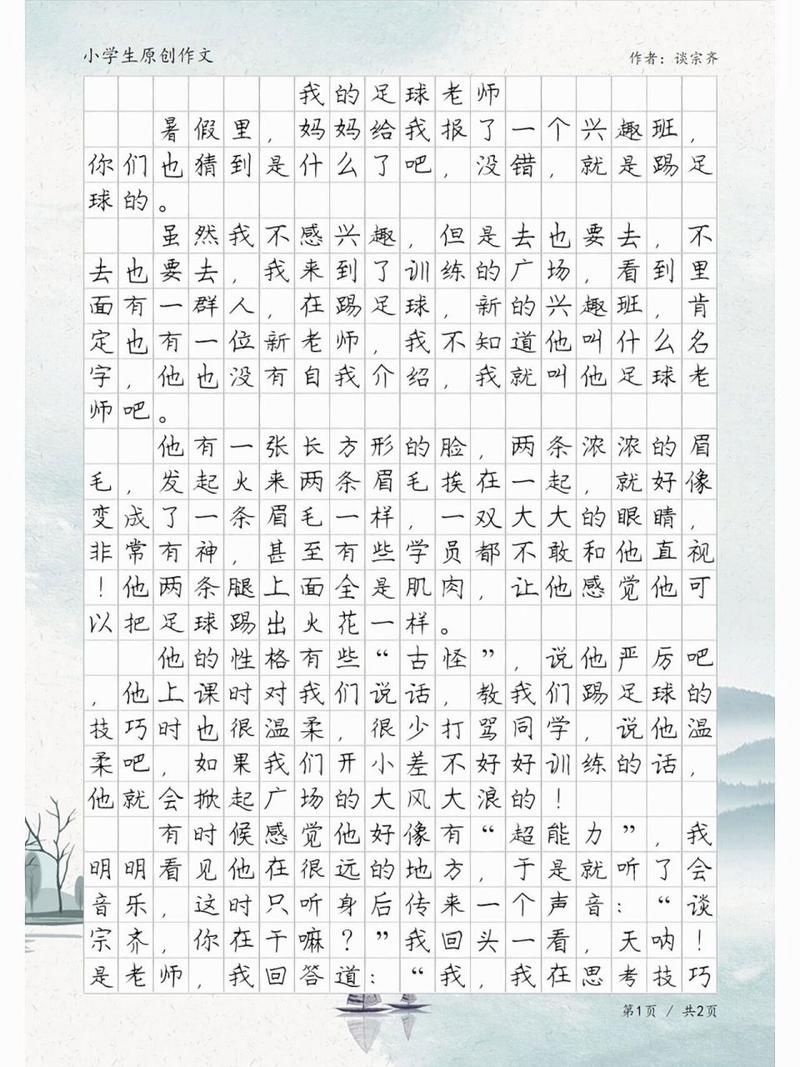 小学生原创作文
作者：谈宗齐
我的足球老师
暑假里，妈妈给我报了一个兴趣班，
你们也猜到是什么了吧，没错，就是踢足
球的。
虽然我不感兴趣，但是去也要去，不
去也要去，我来到了训练的广场，看到里
面有一群人，在踢足球，新的兴趣班，肯
定也有一位新老师，我不知道他叫什么名
字，他也没有自我介绍，我就叫他足球老
师吧。
他有一张长方形的脸，两条浓浓的眉
毛，发起火来两条眉毛挨在一起，就好像
变成了一条眉毛一样，一双大大的眼睛，
非常有神，甚至有些学员都不敢和他直视
！他两条腿上面全是肌肉，让他感觉他可
以把足球踢出火花一样。
他的性格有些“古怪”，说他严厉吧
，他上课时对我们说话，教我们踢足球的
技巧时也很温柔，很少打骂同学，说他温
柔吧，如果我们开小差不好好训练的话，
他就会掀起广场的大风大浪的！
有时候感觉他好像有“超能力”，我
明明看见他在很远的地方，于是就听了会
音乐，这时只听身后传来一个声音：“谈
宗齐，你在干嘛？”我回头一看，天呐！
是老师，我回答道：“我，我在思考技巧
第1页 / 共2页